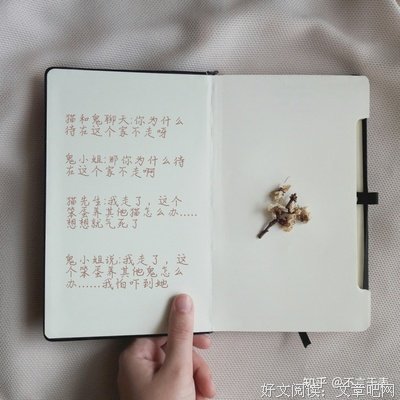 猫和鬼聊天:你为什么
待在这个家不走呀
鬼小姐:那你为什么待
在这个家不走啊
猫先生:我走了，这个
笨蛋养其他猫怎么办……
想想就气死了
鬼小姐说:我走了，这
个笨蛋养其他鬼怎么
办……我怕吓到她
知乎 @不言于表
好文阅读：文章吧网